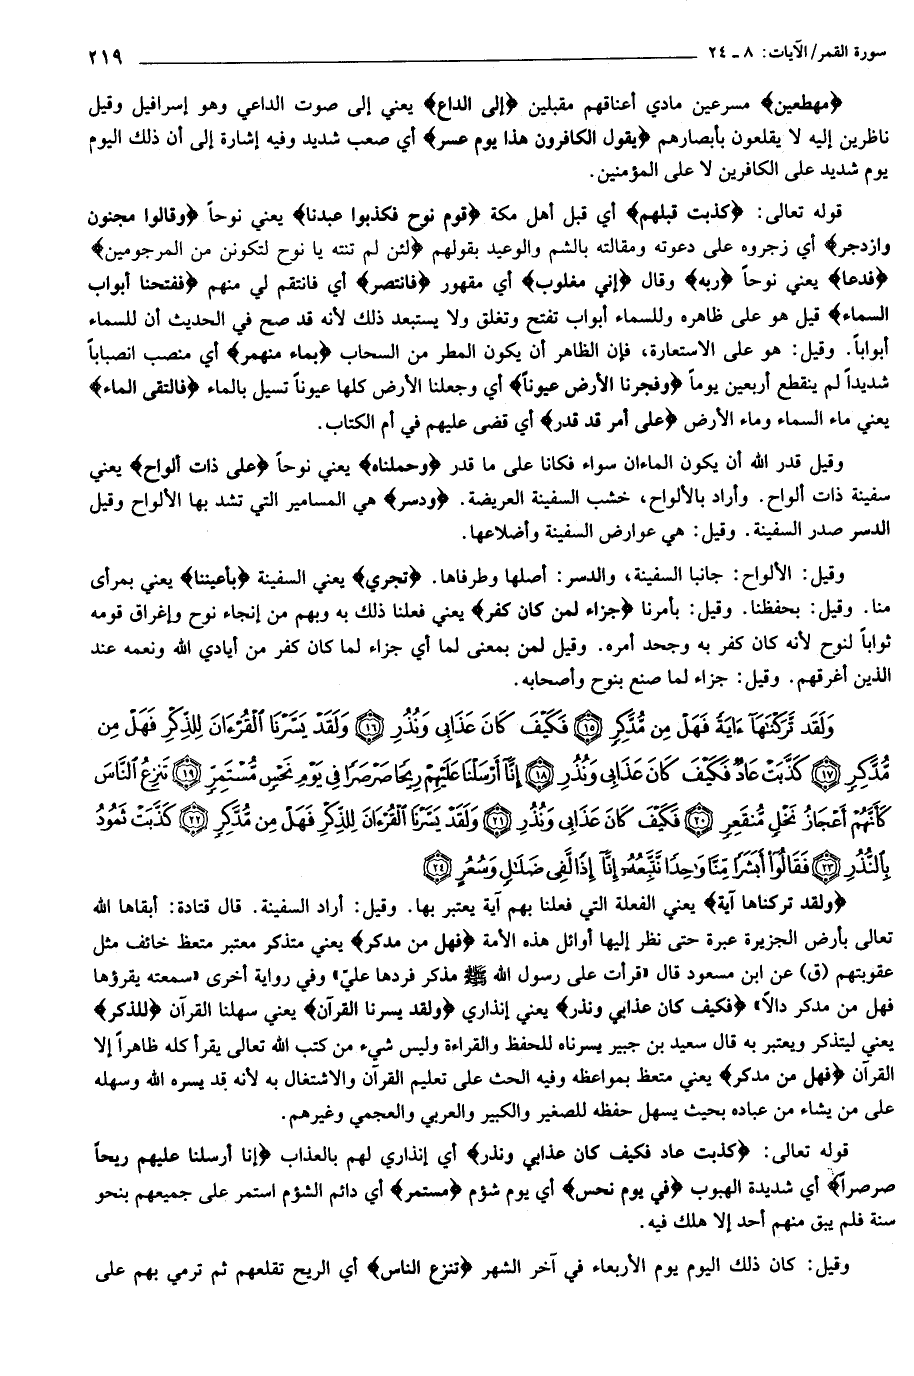 سورة القمر/ الآيات: ٨ ـ ٢٤ ٢١٩
﴿مهطعين﴾ مسرعين مادي أعناقهم مقبلين ﴿إلى الداع﴾ يعني إلى صوت الداعي وهو إسرافيل وقيل
ناظرين إليه لا يقلعون بأبصارهم ﴿يقول الكافرون هذا يوم عسر﴾ أي صعب شديد وفيه إشارة إلى أن ذلك اليوم
يوم شديد على الكافرين لا على المؤمنين.
قوله تعالى: ﴿كذبت قبلهم﴾ أي قبل أهل مكة ﴿قوم نوح فكذبوا عبدنا﴾ يعني نوحاً ﴿وقالوا مجنون
وازدجر﴾ أي زجروه على دعوته ومقالته بالشم والوعيد بقولهم ﴿لئن لم تنته يا نوح لتكونن من المرجومين﴾
﴿فدعا﴾ يعني نوحاً ﴿ربه﴾ وقال ﴿إني مغلوب﴾ أي مقهور ﴿فانتصر﴾ أي فانتقم لي منهم ﴿ففتحنا أبواب
السماء﴾ قيل هو على ظاهره وللسماء أبواب تفتح وتغلق ولا يستبعد ذلك لأنه قد صح في الحديث أن للسماء
أبواباً. وقيل: هو على الاستعارة، فإن الظاهر أن يكون المطر من السحاب ﴿بماء منهمر﴾ أي منصب انصباباً
شديداً لم ينقطع أربعين يوماً ﴿وفجرنا الأرض عيوناً﴾ أي وجعلنا الأرض كلها عيوناً تسيل بالماء ﴿فالتقى الماء﴾
يعني ماء السماء وماء الأرض ﴿على أمر قد قدر﴾ أي قضى عليهم في أم الكتاب.
وقيل قدر الله أن يكون الماءان سواء فكانا على ما قدر ﴿وحملناه﴾ يعني نوحاً ﴿على ذات ألواح﴾ يعني
سفينة ذات ألواح. وأراد بالألواح، خشب السفينة العريضة. ﴿ودسر﴾ هي المسامير التي تشد بها الألواح وقيل
الدسر صدر السفينة. وقيل: هي عوارض السفينة وأضلاعها.
وقيل: الألواح: جانبا السفينة، والدسر: أصلها وطرفاها. ﴿تجري﴾ يعني السفينة ﴿بأعيننا﴾ يعني بمرأى
منا. وقيل: بحفظنا. وقيل: بأمرنا ﴿جزاء لمن كان كفر﴾ يعني فعلنا ذلك به وبهم من إنجاء نوح وإغراق قومه
ثواباً لنوح لأنه كان كفر به وجحد أمره. وقيل لمن بمعنى لما أي جزاء لما كان كفر من أيادي الله ونعمه عند
الذين أغرقهم. وقيل: جزاء لما صنع بنوح وأصحابه.
وَلَقَد تَّرَكْنَٰهَآ ءَايَةً فَهَلْ مِن مُّدَّكِرٍ ﴿١٥﴾ فَكَيْفَ كَانَ عَذَابِى وَنُذُرِ ﴿١٦﴾ وَلَقَدْ يَسَّرْنَا ٱلْقُرْءَانَ لِلذِّكْرِ فَهَلْ مِن
مُّدَّكِرٍ ﴿١٧﴾ كَذَّبَتْ عَادٌ فَكَيْفَ كَانَ عَذَابِى وَنُذُرِ ﴿١٨﴾ إِنَّآ أَرْسَلْنَا عَلَيْهِمْ رِيحًا صَرْصَرًا فِى يَوْمِ نَحْسٍ مُّسْتَمِرٍّ ﴿١٩﴾ تَنزِعُ ٱلنَّاسَ
كَأَنَّهُمْ أَعْجَازُ نَخْلٍ مُّنقَعِرٍ ﴿٢٠﴾ فَكَيْفَ كَانَ عَذَابِى وَنُذُرِ ﴿٢١﴾ وَلَقَدْ يَسَّرْنَا ٱلْقُرْءَانَ لِلذِّكْرِ فَهَلْ مِن مُّدَّكِرٍ ﴿٢٢﴾ كَذَّبَتْ ثَمُودُ
بِٱلنُّذُرِ ﴿٢٣﴾ فَقَالُوٓا۟ أَبَشَرًا مِّنَّا وَٰحِدًا نَّتَّبِعُهُۥٓ إِنَّآ إِذًا لَّفِى ضَلَٰلٍ وَسُعُرٍ ﴿٢٤﴾
﴿ولقد تركناها آية﴾ يعني الفعلة التي فعلنا بهم آية يعتبر بها. وقيل: أراد السفينة. قال قتادة: أبقاها الله
تعالى بأرض الجزيرة عبرة حتى نظر إليها أوائل هذه الأمة ﴿فهل من مدكر﴾ يعني متذكر معتبر متعظ خائف مثل
عقوبتهم (ق) عن ابن مسعود قال «قرأت على رسول الله ﷺ مذكر فردها عليّ» وفي رواية أخرى «سمعته يقرؤها
فهل من مدكر دالاً» ﴿فكيف كان عذابي ونذر﴾ يعني إنذاري ﴿ولقد يسرنا القرآن﴾ يعني سهلنا القرآن ﴿للذكر﴾
يعني ليتذكر ويعتبر به قال سعيد بن جبير يسرناه للحفظ والقراءة وليس شيء من كتب الله تعالى يقرأ كله ظاهراً إلا
القرآن ﴿فهل من مدكر﴾ يعني متعظ بمواعظه وفيه الحث على تعليم القرآن والاشتغال به لأنه قد يسره الله وسهله
على من يشاء من عباده بحيث يسهل حفظه للصغير والكبير والعربي والعجمي وغيرهم.
قوله تعالى: ﴿كذبت عاد فكيف كان عذابي ونذر﴾ أي إنذاري لهم بالعذاب ﴿إنا أرسلنا عليهم ريحاً
صرصراً﴾ أي شديدة الهبوب ﴿في يوم نحس﴾ أي يوم شؤم ﴿مستمر﴾ أي دائم الشؤم استمر على جميعهم بنحو
سنة فلم يبق منهم أحد إلا هلك فيه.
وقيل: كان ذلك اليوم يوم الأربعاء في آخر الشهر ﴿تنزع الناس﴾ أي الريح تقلعهم ثم ترمي بهم على